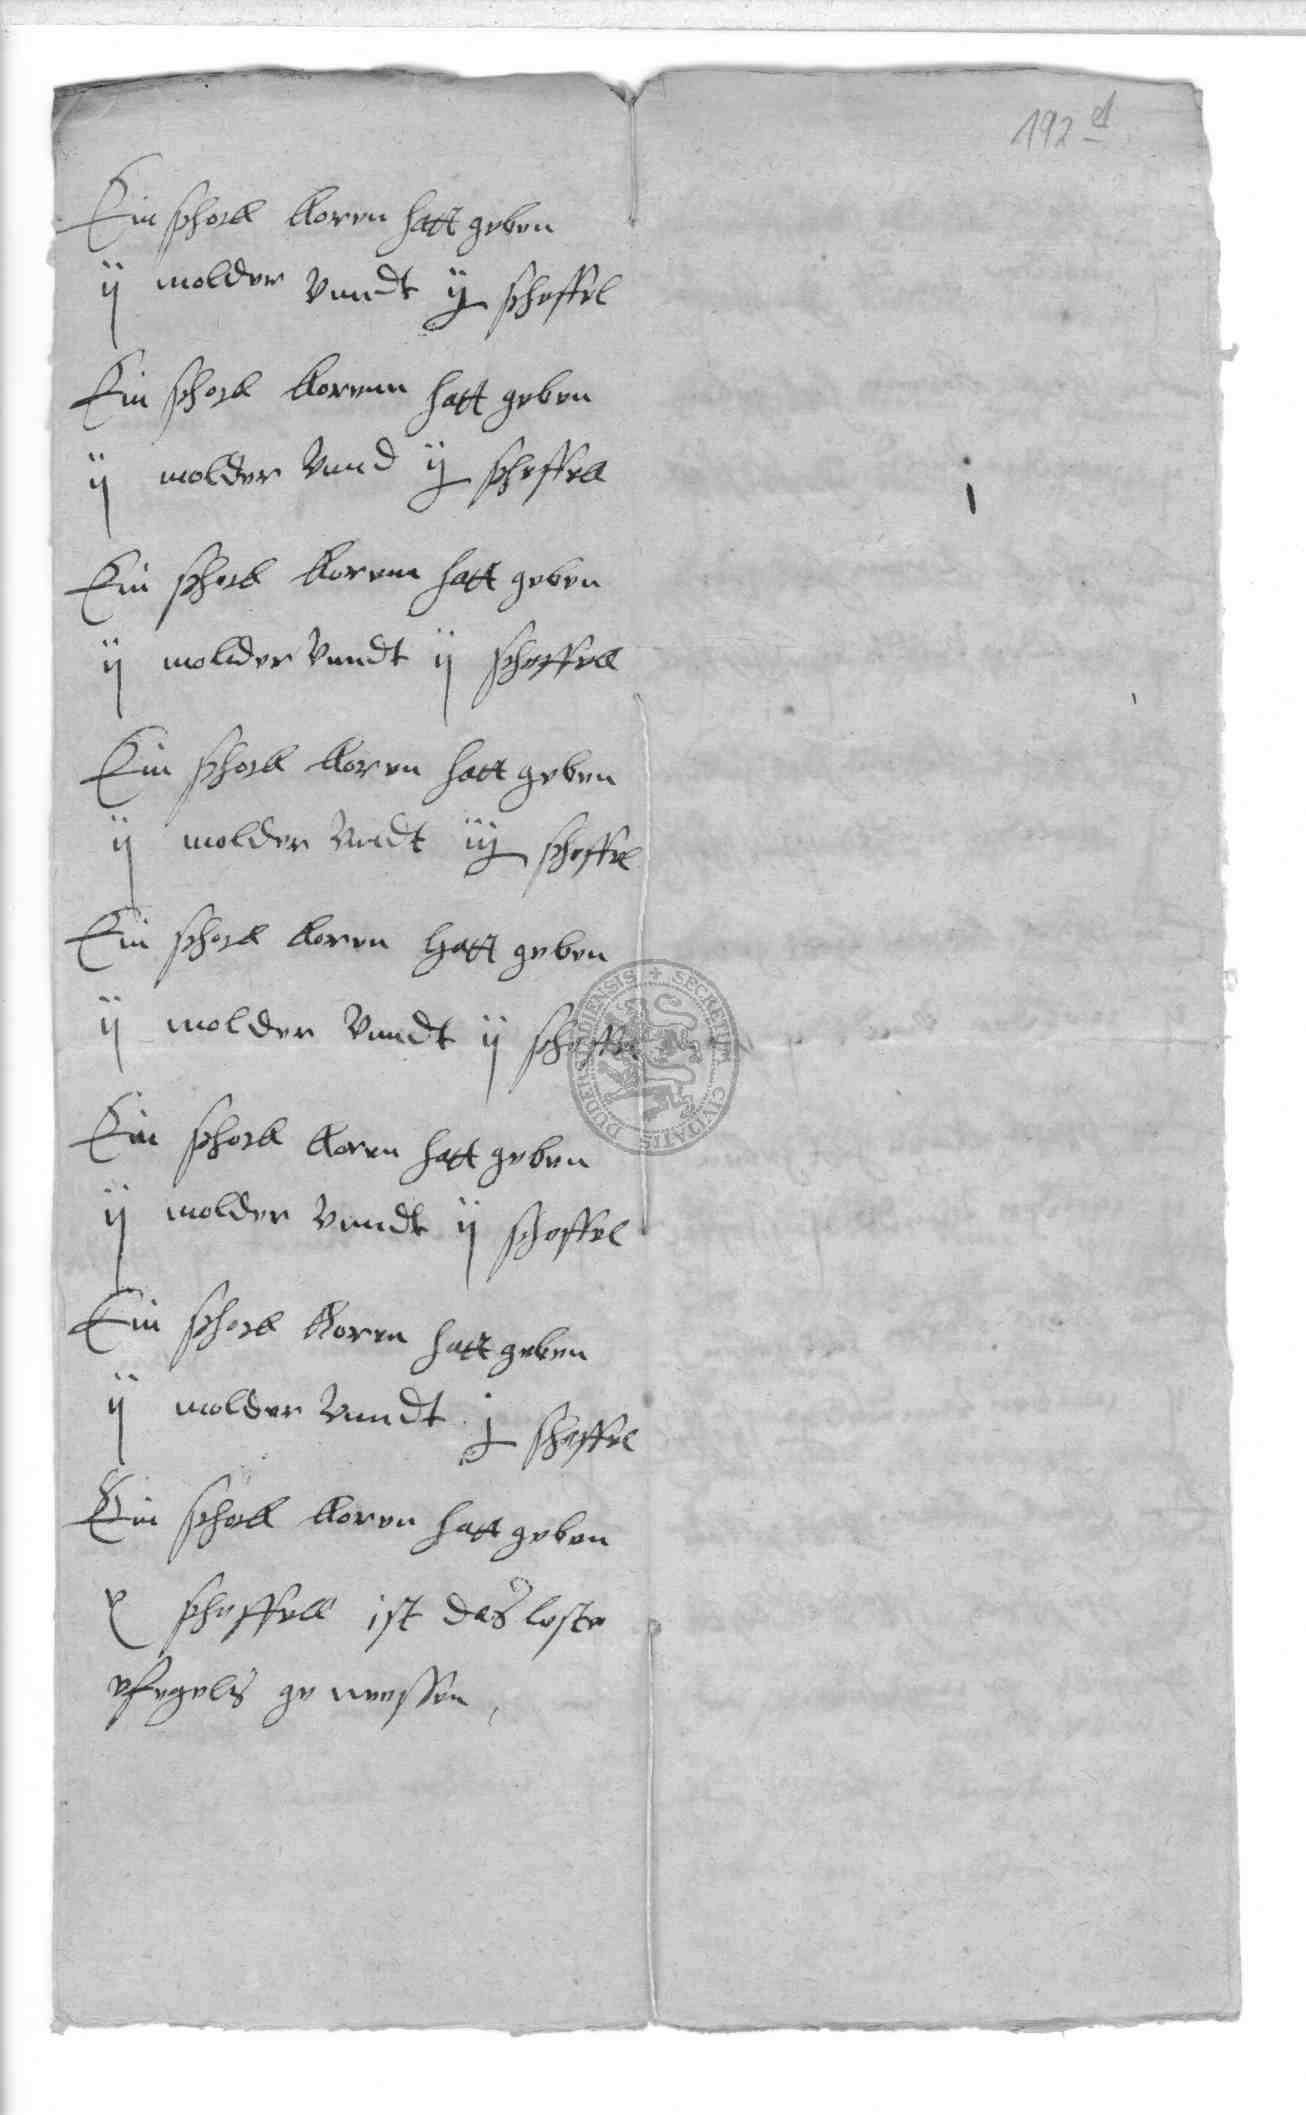 192 d
Ein schock korn hatt geben
ij molder vnndt ij scheffel
Ein schock kornn hatt geben
ij molder vnnd ij scheffell
Ein schock kornn hatt geben
ij molder vnndt ij scheffell
Ein schock korn hatt geben
ij molder vndt iij scheffel
Ein schock korn Hatt geben
ij molder vnndt ij scheffel
DUDERSTADIENSIS + SECRETUM CIVITATIS
Ein schock korn hatt geben
ij molder vnndt ij scheffel
Ein schock korn hatt geben
ij molder vnndt j scheffel
Ein schock korn hatt geben
x scheffell ist das leste
gewessen